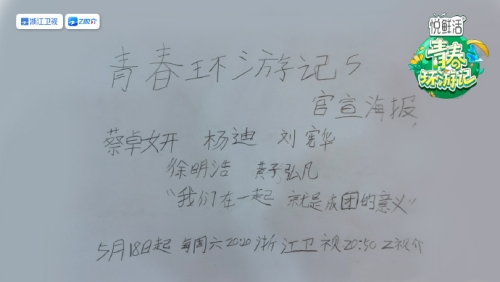 浙江卫视 Z视介
悦鲜活
青春
环游记
青春环游记5
官宣海报
蔡卓妍 杨迪 刘宪华
徐明浩 黄子弘凡
“我们在一起 就是成团的意义”
5月18日起 每周六2020 浙江卫视20:50 Z视介